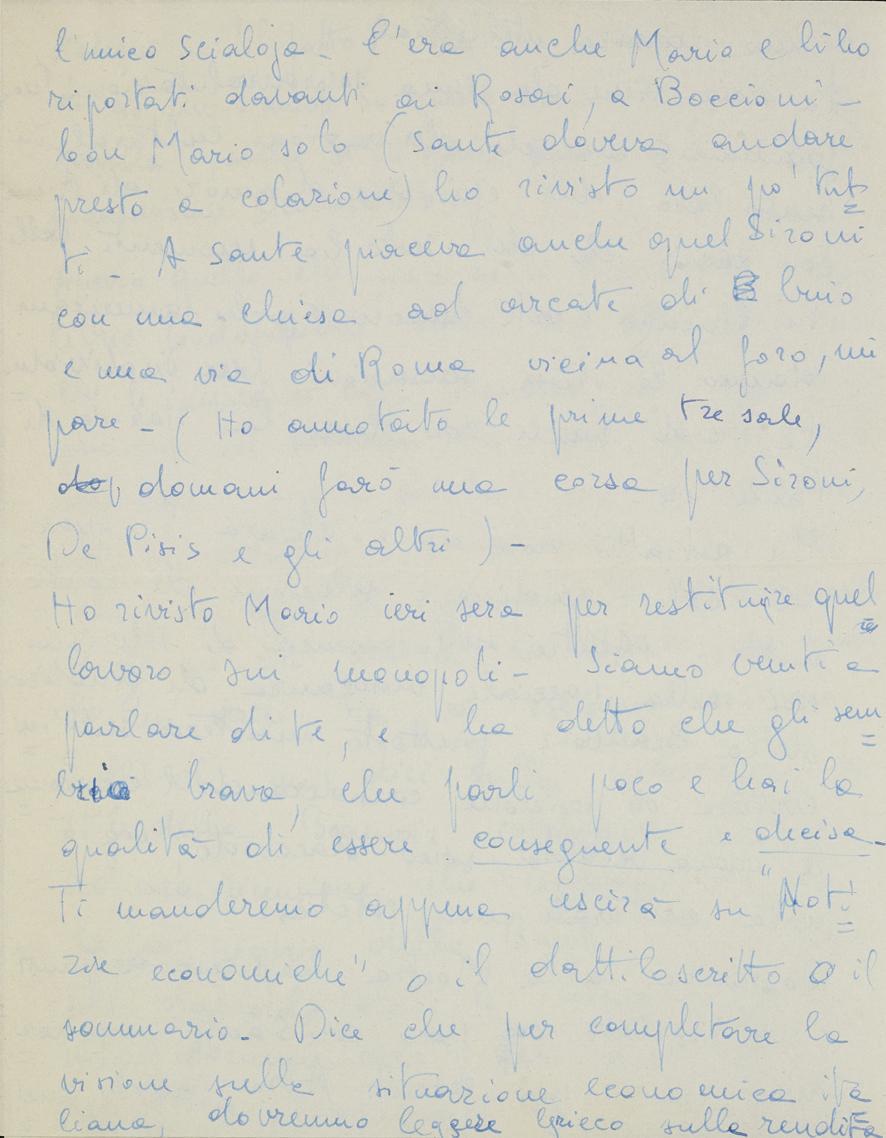 l'unico Scialoja - C'era anche Mario e li ho
riportati davanti ai Rosai, a Boccioni -
Con Mario solo (Sante doveva andare
presto a colazione) ho rivisto un po' tut=
ti - A Sante piaceva anche quel Sironi
con una chiesa ad arcate di buio
e una via di Roma vicina al foro, mi
pare - (Ho annotato le prime tre sale,
domani farò una corsa per Sironi,
De Pisis e gli altri) -
Ho rivisto Mario ieri sera per restituire quel
lavoro sui monopoli - Siamo venuti a
parlare di te, e ha detto che gli sem=
bri brava, che parli poco e hai la
qualità di essere conseguente e decisa -
Ti manderemo appena uscirà su "Noti=
zie economiche" o il dattiloscritto o il
sommario. Dice che per completare la
visione sulla situazione economica ita=
liana, dovremmo leggere Grieco sulla rendita